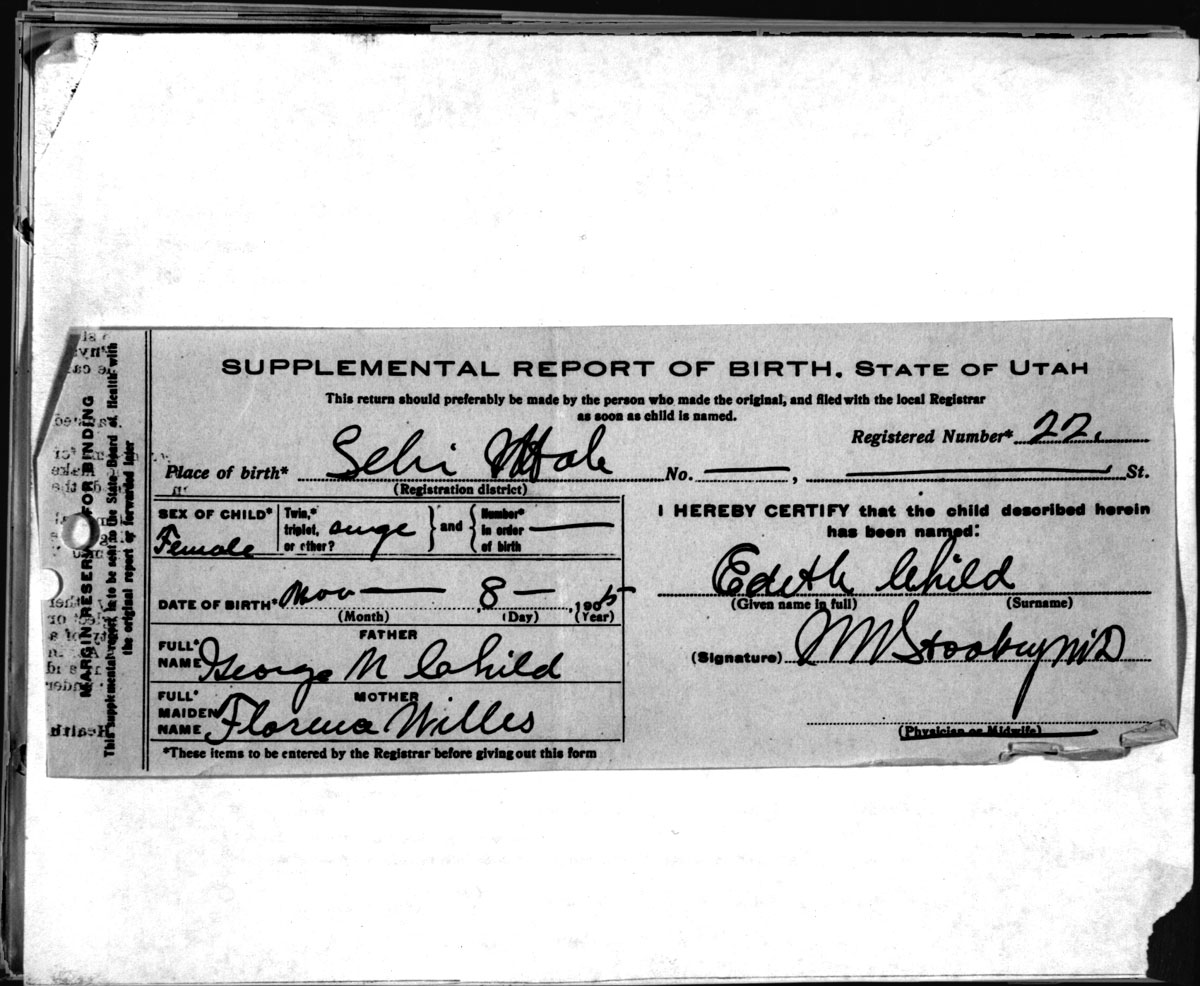 SUPPLEMENTAL REPORT OF BIRTH, STATE OF UTAH
This return should preferably be made by the person who made the original, and filed with the local Registrar
as soon as child is named.
Registered Number* 22.
Place of birth* Lehi Utah No. ,  St.
(Registration district)
SEX OF CHILD* Female
Twin,* triplet, or other? and Number* in order of birth
DATE OF BIRTH* Nov 8 1905
(Month) (Day) (Year)
FATHER
FULL* NAME George N Child
MOTHER
FULL* MAIDEN NAME Willes
*These items to be entered by the Registrar before giving out this form
I HEREBY CERTIFY that the child described herein
has been named:
Edeth Child
(Given name in full) (Surname)
(Signature)
(Physician or Midwife)
MARGIN RESERVED FOR BINDING
This supplemental report is to be sent to the State Board of Health with
the original report or forwarded later